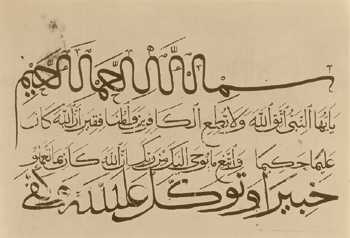 بسم الله الرحمن الرحيم
يا أيها النبي اتق الله ولا تطع الكافرين والمنافقين إن الله كان
عليما حكيما واتبع ما يوحى إليك من ربك إن الله كان بما تعملون
خبيرا وتوكل على الله وكفى